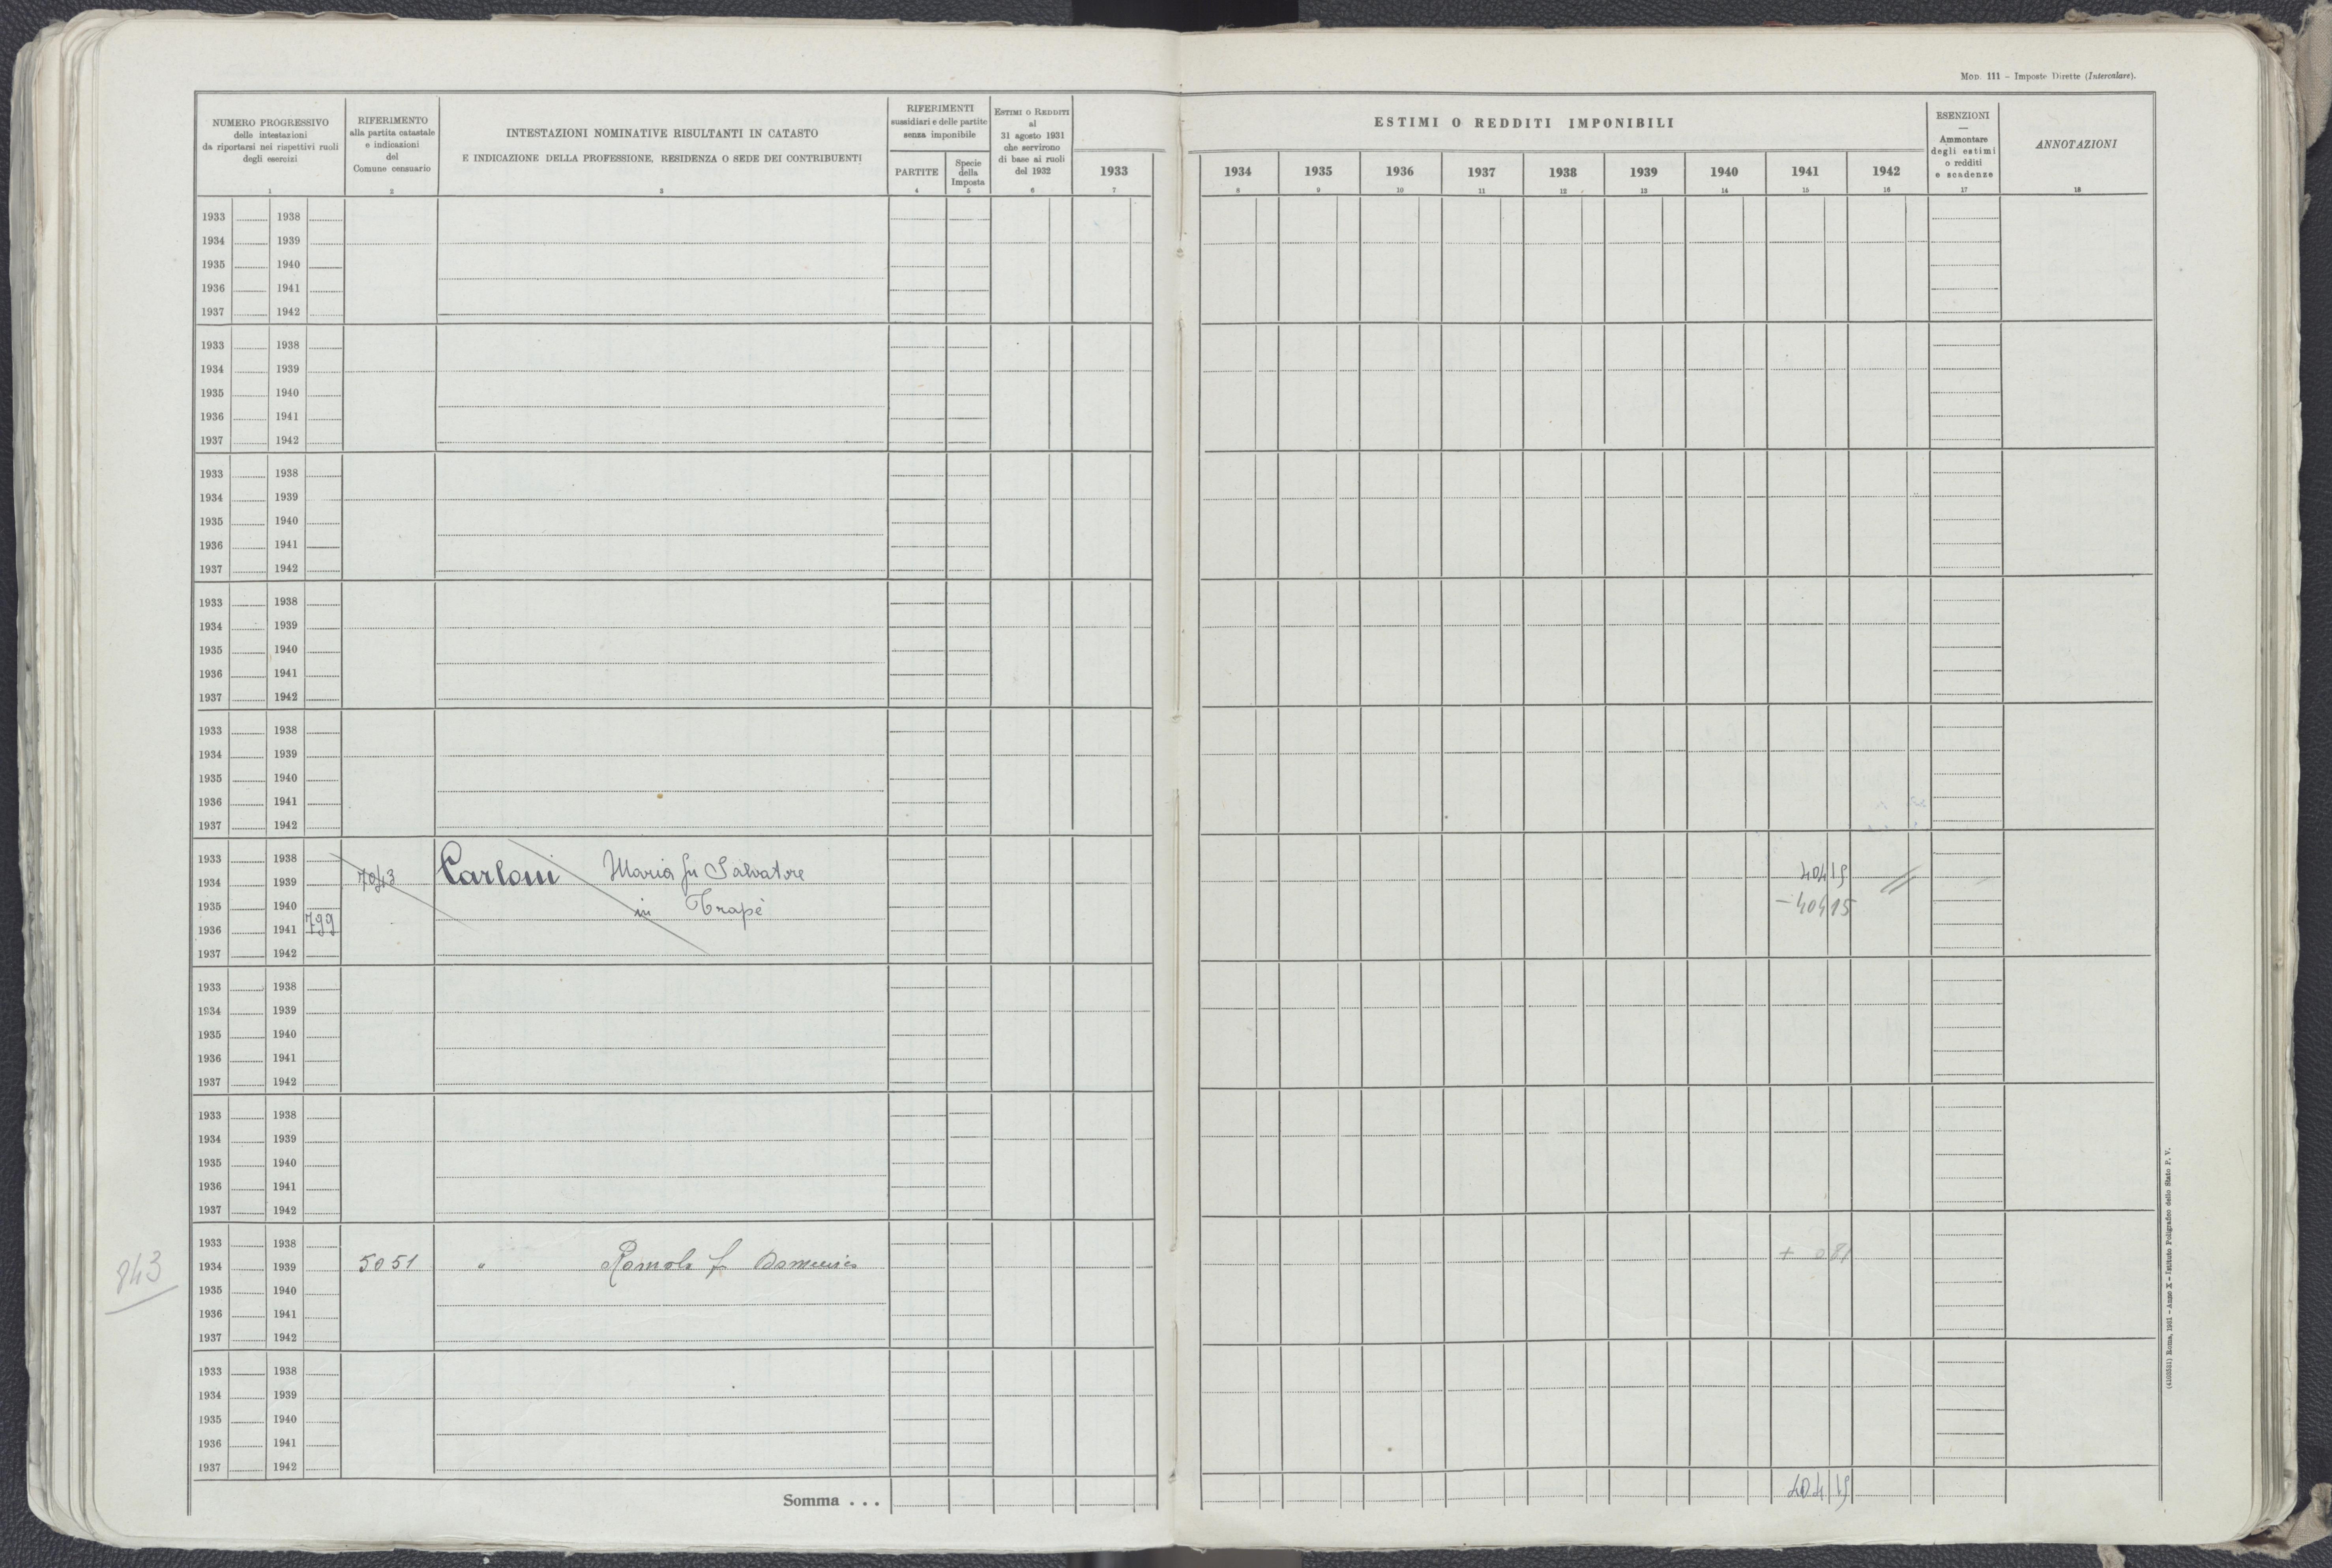 MOD. 111 – Imposte Dirette (Intercalare).
NUMERO PROGRESSIVO
delle intestazioni
da riportarsi nei rispettivi ruoli
degli esercizi
1
RIFERIMENTO
alla partita catastale
e indicazioni
del
Comune censuario
2
INTESTAZIONI NOMINATIVE RISULTANTI IN CATASTO
E INDICAZIONE DELLA PROFESSIONE, RESIDENZA O SEDE DEI CONTRIBUENTI
3
RIFERIMENTI
sussidiari e delle partite
senza imponibile
PARTITE
4
Specie
della
Imposta
5
ESTIMI O REDDITI
al
31 agosto 1931
che servirono
di base ai ruoli
del 1932
6
ESTIMI O REDDITI IMPONIBILI
1933 1934 1935 1936 1937 1938 1939 1940 1941 1942
7 8 9 10 11 12 13 14 15 16
ESENZIONI
—
Ammontare
degli estimi
o redditi
e scadenze
17
ANNOTAZIONI
18
1933 1938
1934 1939
1935 1940
1936 1941
1937 1942
1933 1938
1934 1939
1935 1940
1936 1941
1937 1942
1933 1938
1934 1939
1935 1940
1936 1941
1937 1942
1933 1938
1934 1939
1935 1940
1936 1941
1937 1942
1933 1938
1934 1939
1935 1940
1936 1941
1937 1942
1933 1938
1934 1939 7043 Carloni Maria fu Salvatore 404 15
1935 1940 in Trapè – 404 15
1936 1941 799
1937 1942
1933 1938
1934 1939
1935 1940
1936 1941
1937 1942
1933 1938
1934 1939
1935 1940
1936 1941
1937 1942
1933 1938
843 1934 1939 5051 " Romolo fu Domenico + 0 81
1935 1940
1936 1941
1937 1942
1933 1938
1934 1939
1935 1940
1936 1941
1937 1942
Somma . . . 404 15
(4103531) Roma, 1931 – Anno X – Istituto Poligrafico dello Stato P. V.